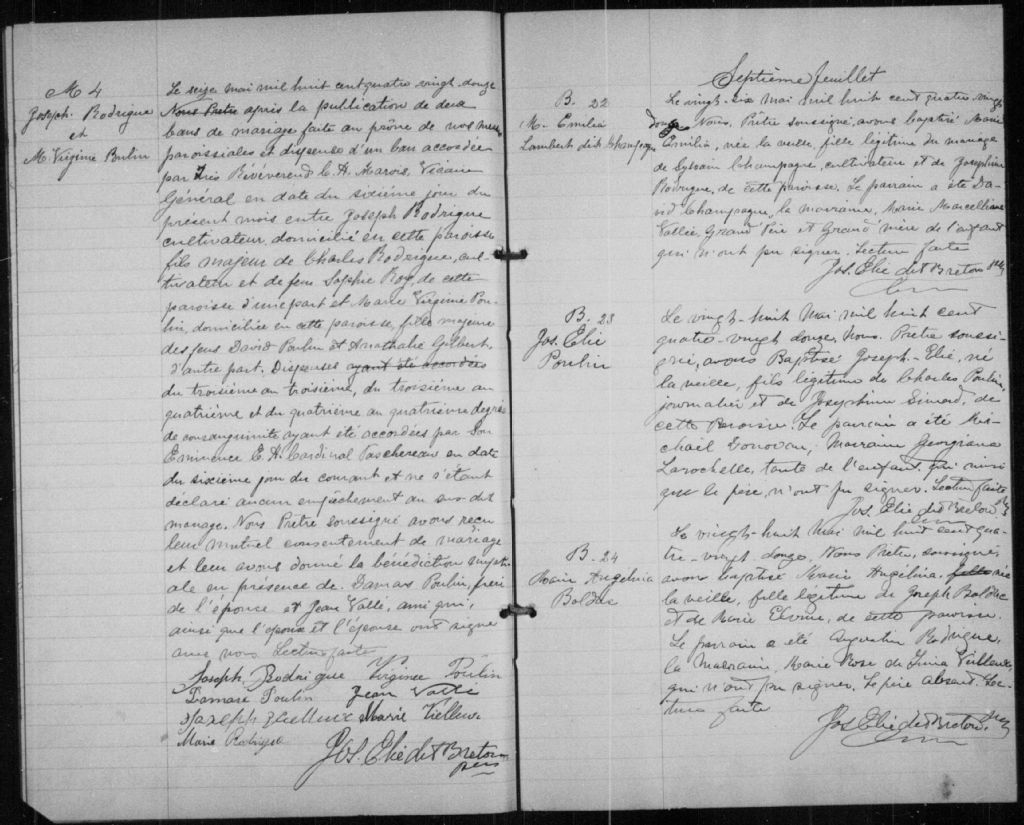 M 4
Joseph Rodrigue
et
M. Virginie Poulin
Le seize mai mil huit cent quatre vingt-douze
Nous Prêtre après la publication de deux
bans de mariage faite au prône de nos messes
paroissiales et dispense d'un ban accordée
par Très Révérend C. A. Marois, Vicaire
Général en date du sixième jour du
présent mois entre Joseph Rodrigue
cultivateur, domicilié en cette paroisse
fils majeur de Charles Rodrigue, cul-
tivateur et de feue Sophie Roy, de cette
paroisse d'une part et Marie Virginie Pou-
lin, domiciliée en cette paroisse, fille majeure
des feus David Poulin et Anathalie Gilbert,
d'autre part, Dispenses ayant été accordées
du troisième au troisième, du troisième au
quatrième et du quatrième au quatrième degrés
de consanguinité ayant été accordées par Son
Eminence E. A. Cardinal Taschereau en date
du sixième jour du courant et ne s'étant
déclaré aucun empêchement au sus-dit
mariage. Nous Prêtre soussigné avons reçu
leur mutuel consentement de mariage
et leur avons donné la bénédiction nupti-
ale en présence de Damas Poulin, frère
de l'épouse et Jean Vallé, ami qui,
ainsi que l'époux et l'épouse ont signé
avec nous Lecture faite
Joseph Rodrigue Virginee Poulin
Damase Poulin Jean Vallé
Joseph Veilleux Marie Villeux
Marie Rodrigue
Jos. Elie dit Breton
ptre
Septième feuillet
B. 22
M. Emilia
Lambert dit Champagne
Le vingt-six mai mil huit cent quatre-vingt
douze Nous, Prêtre soussigné, avons baptisé Marie
Emilia, née la veille, fille légitime du mariage
de Sylvain Champagne, cultivateur et de Josephine
Rodrigue, de cette paroisse. Le parrain a été Da-
vid Champagne, la marraine, Marie Marcelline
Vallée, Grand Père et Grand'mère de l'enfant
qui n'ont pu signer. Lecture faite
Jos. Elie dit Breton Ptre
B. 23
Jos. Elie
Poulin
Le vingt-huit Mai mil huit cent
quatre-vingt douze, Nous. Prêtre soussi-
gné, avons Baptisé Joseph-Elie, né
la veille, fils légitime de Charles Poulin,
journalier et de Josephine Simard, de
cette Paroisse. Le parrain a été Mi-
chaël Donovan, Marraine Georgiana
Larochelle, tante de l'enfant qui ainsi
que le père, n'ont pu signer. Lecture faite
Jos. Elie dit Breton Ptre
B. 24
Marie Angélina
Bolduc
Le vingt-huit Mai mil huit cent qua-
tre-vingt douze. Nous Prêtre, soussigné,
avons baptisé Marie Angélina, fille née
la veille, fille légitime de Joseph Bolduc
et de Marie Elvine, de cette paroisse.
Le parrain a été Rodrigue,
la Marraine, Marie Rose de Lima Veilleux,
qui n'ont pu signer. Le père absent. Lec-
ture faite
Jos Elie dit Breton. Ptre